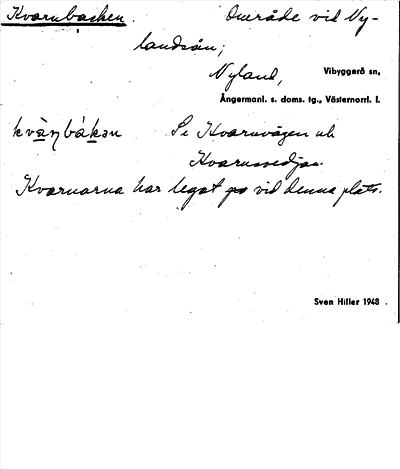 Kvarnbacken. Område vid Ny-
landsån;
Nyland, Vibyggerå sn,
Ångermanl. s. doms. tg., Västernorrl. l.
kvà̱ɳbáḵən Se Kvarnvägen och
Kvarnsvedjan.
Kvarnarna har legat på vid denna plats.
Sven Hiller 1948.